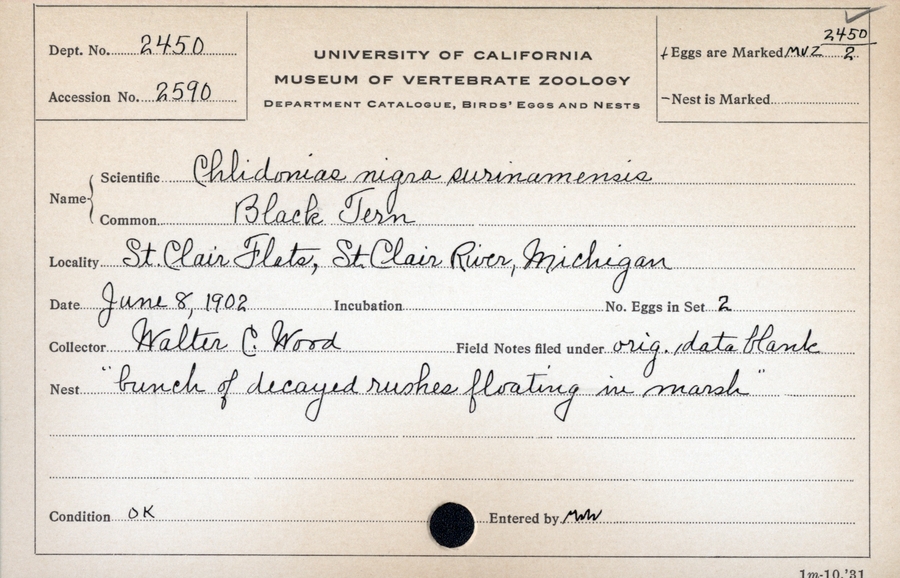 Dept. No. 2450
Accession No. 2590
UNIVERSITY OF CALIFORNIA
MUSEUM OF VERTEBRATE ZOOLOGY
DEPARTMENT CATALOGUE, BIRDS' EGGS AND NESTS
Eggs are Marked MVZ 2450/2
Nest is Marked
Name
Scientific Chlidonias nigra surinamensis
Common Black Tern
Locality St. Clair Flats, St. Clair River, Michigan
Date June 8, 1902 Incubation No. Eggs in Set 2
Collector Walter C. Wood Field Notes filed under orig. data blank
Nest "bunch of decayed rushes floating in marsh"
Condition OK Entered by
1m-10,'31